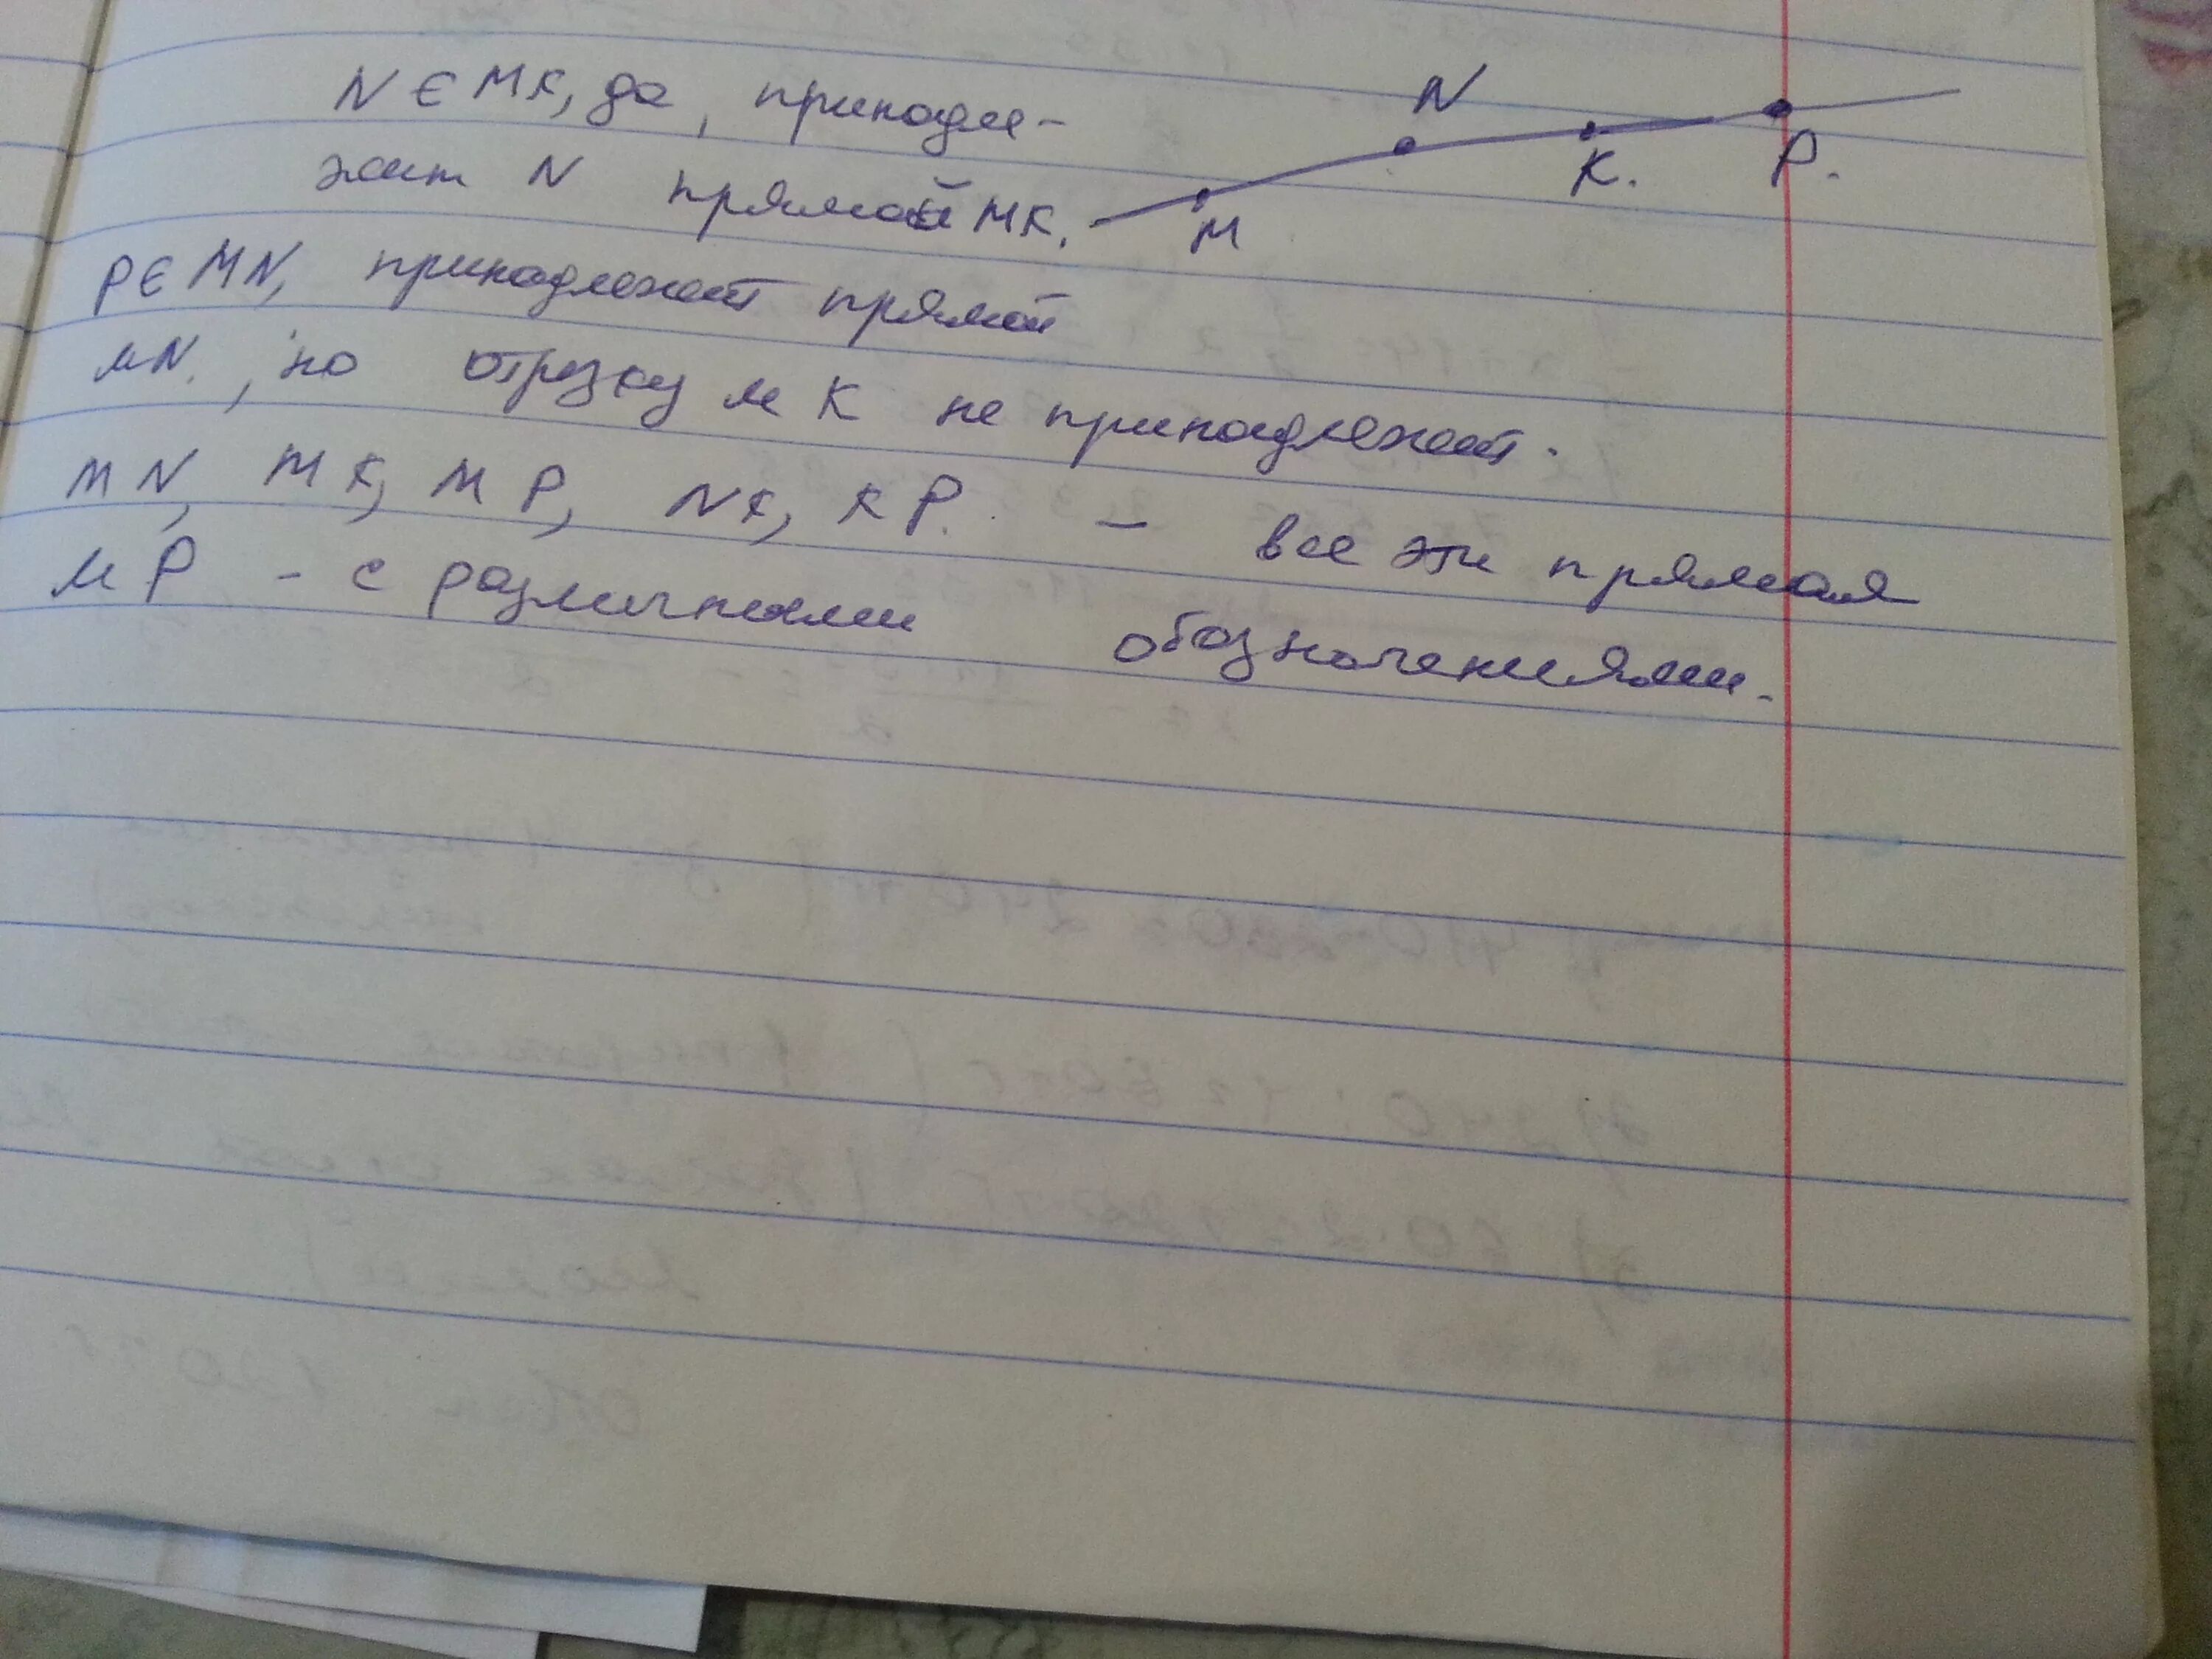 N ∈ MK, да, принадле-
жит N прямой MK.
P ∈ MN, принадлежит прямой
MN, но отрезку MK не принадлежит.
MN, MK, MP, NK, KP. – все эти прямая
MP – с различными обозначениями.
N
K.
P.
M